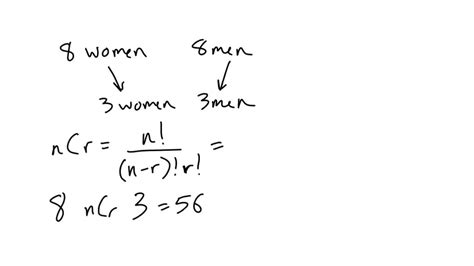 8 women 8 men
3 women 3 men
nCr = n! / (n-r)! r! =
8 nCr 3 = 56